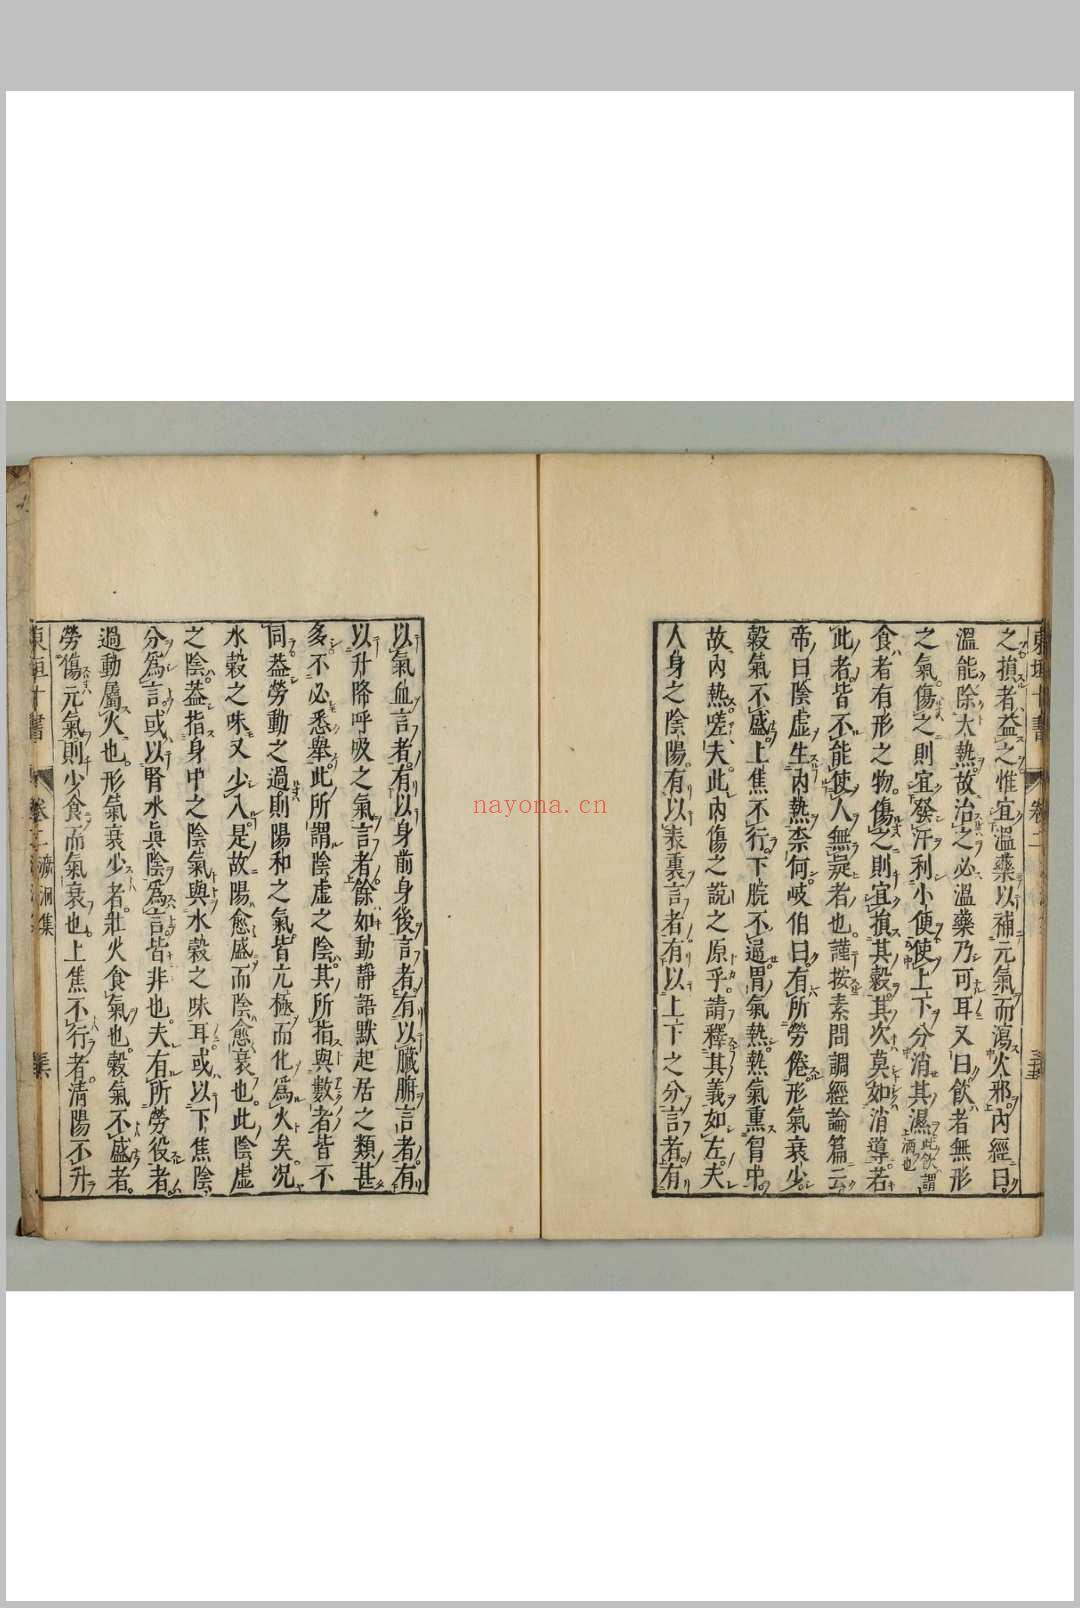 東垣十書
卷二
三十五
之損者益之惟宜溫藥以補元氣而瀉火邪內經曰
溫能除大熱故治之必溫藥乃可耳又曰飲者無形
之氣傷之則宜發汗利小便使上下分消其濕此飲謂酒也
食者有形之物傷之則宜損其穀其次莫如消導若
此者皆不能使人無疑者也謹按素問調經論篇云
帝曰陰虛生內熱柰何岐伯曰有所勞倦形氣衰少
穀氣不盛上焦不行下脘不通胃氣熱熱氣熏胷中
故內熱嗟夫此內傷之說之原乎請釋其義如左夫
人身之陰陽有以表裏言者有以上下之分言者有
以氣血言者有以身前身後言者有以臟腑言者有
以升降呼吸之氣言者餘如動靜語默起居之類甚
多不必悉舉此所謂陰虛之陰其所指與數者皆不
同葢勞動之過則陽和之氣皆亢極而化爲火矣况
水穀之味又少入是故陽愈盛而陰愈衰也此陰虛
之陰葢指身中之陰氣與水穀之味耳或以下焦陰
分爲言或以腎水眞陰爲言皆非也夫有所勞役者
過動屬火也形氣衰少者壯火食氣也穀氣不盛者
勞傷元氣則少食而氣衰也上焦不行者清陽不升
東垣十書
卷二
溯洄集
nayona.cn